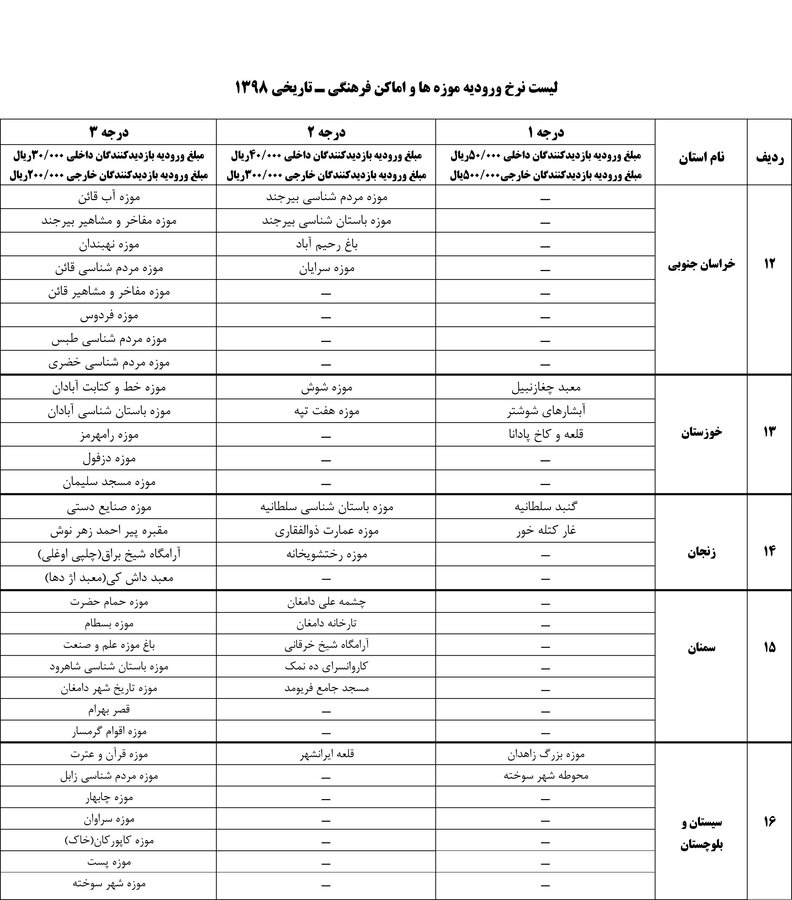 لیست نرخ ورودیه موزه ها و اماکن فرهنگی ـ تاریخی ۱۳۹۸
ردیف	نام استان	درجه ۱	درجه ۲	درجه ۳
مبلغ ورودیه بازدیدکنندگان داخلی ۵۰/۰۰۰ریال	مبلغ ورودیه بازدیدکنندگان داخلی ۴۰/۰۰۰ریال	مبلغ ورودیه بازدیدکنندگان داخلی ۳۰/۰۰۰ریال
مبلغ ورودیه بازدیدکنندگان خارجی ۵۰۰/۰۰۰یال	مبلغ ورودیه بازدیدکنندگان خارجی ۳۰۰/۰۰۰ریال	مبلغ ورودیه بازدیدکنندگان خارجی ۲۰۰/۰۰۰ریال
۱۲	خراسان جنوبی	ـ	موزه مردم شناسی بیرجند	موزه آب قائن
ـ	موزه باستان شناسی بیرجند	موزه مفاخر و مشاهیر بیرجند
ـ	باغ رحیم آباد	موزه نهبندان
ـ	موزه سرایان	موزه مردم شناسی قائن
ـ	ـ	موزه مفاخر و مشاهیر قائن
ـ	ـ	موزه فردوس
ـ	ـ	موزه مردم شناسی طبس
ـ	ـ	موزه مردم شناسی خضری
۱۳	خوزستان	معبد چغازنبیل	موزه شوش	موزه خط و کتابت آبادان
آبشارهای شوشتر	موزه هفت تپه	موزه باستان شناسی آبادان
قلعه و کاخ پادانا	ـ	موزه رامهرمز
ـ	ـ	موزه دزفول
ـ	ـ	موزه مسجد سلیمان
۱۴	زنجان	گنبد سلطانیه	موزه باستان شناسی سلطانیه	موزه صنایع دستی
غار کتله خور	موزه عمارت ذوالفقاری	مقبره پیر احمد زهر نوش
ـ	موزه رختشویخانه	آرامگاه شیخ براق(چلپی اوغلی)
ـ	ـ	معبد داش کی(معبد اژ دها)
۱۵	سمنان	ـ	چشمه علی دامغان	موزه حمام حضرت
ـ	تارخانه دامغان	موزه بسطام
ـ	آرامگاه شیخ خرقانی	باغ موزه علم و صنعت
ـ	کاروانسرای ده نمک	موزه باستان شناسی شاهرود
ـ	مسجد جامع فریومد	موزه تاریخ شهر دامغان
ـ	ـ	قصر بهرام
ـ	ـ	موزه اقوام گرمسار
۱۶	سیستان و بلوچستان	موزه بزرگ زاهدان	قلعه ایرانشهر	موزه قرآن و عترت
محوطه شهر سوخته	ـ	موزه مردم شناسی زابل
ـ	ـ	موزه چابهار
ـ	ـ	موزه سراوان
ـ	ـ	موزه کاپورکان(خاک)
ـ	ـ	موزه پست
ـ	ـ	موزه شهر سوخته